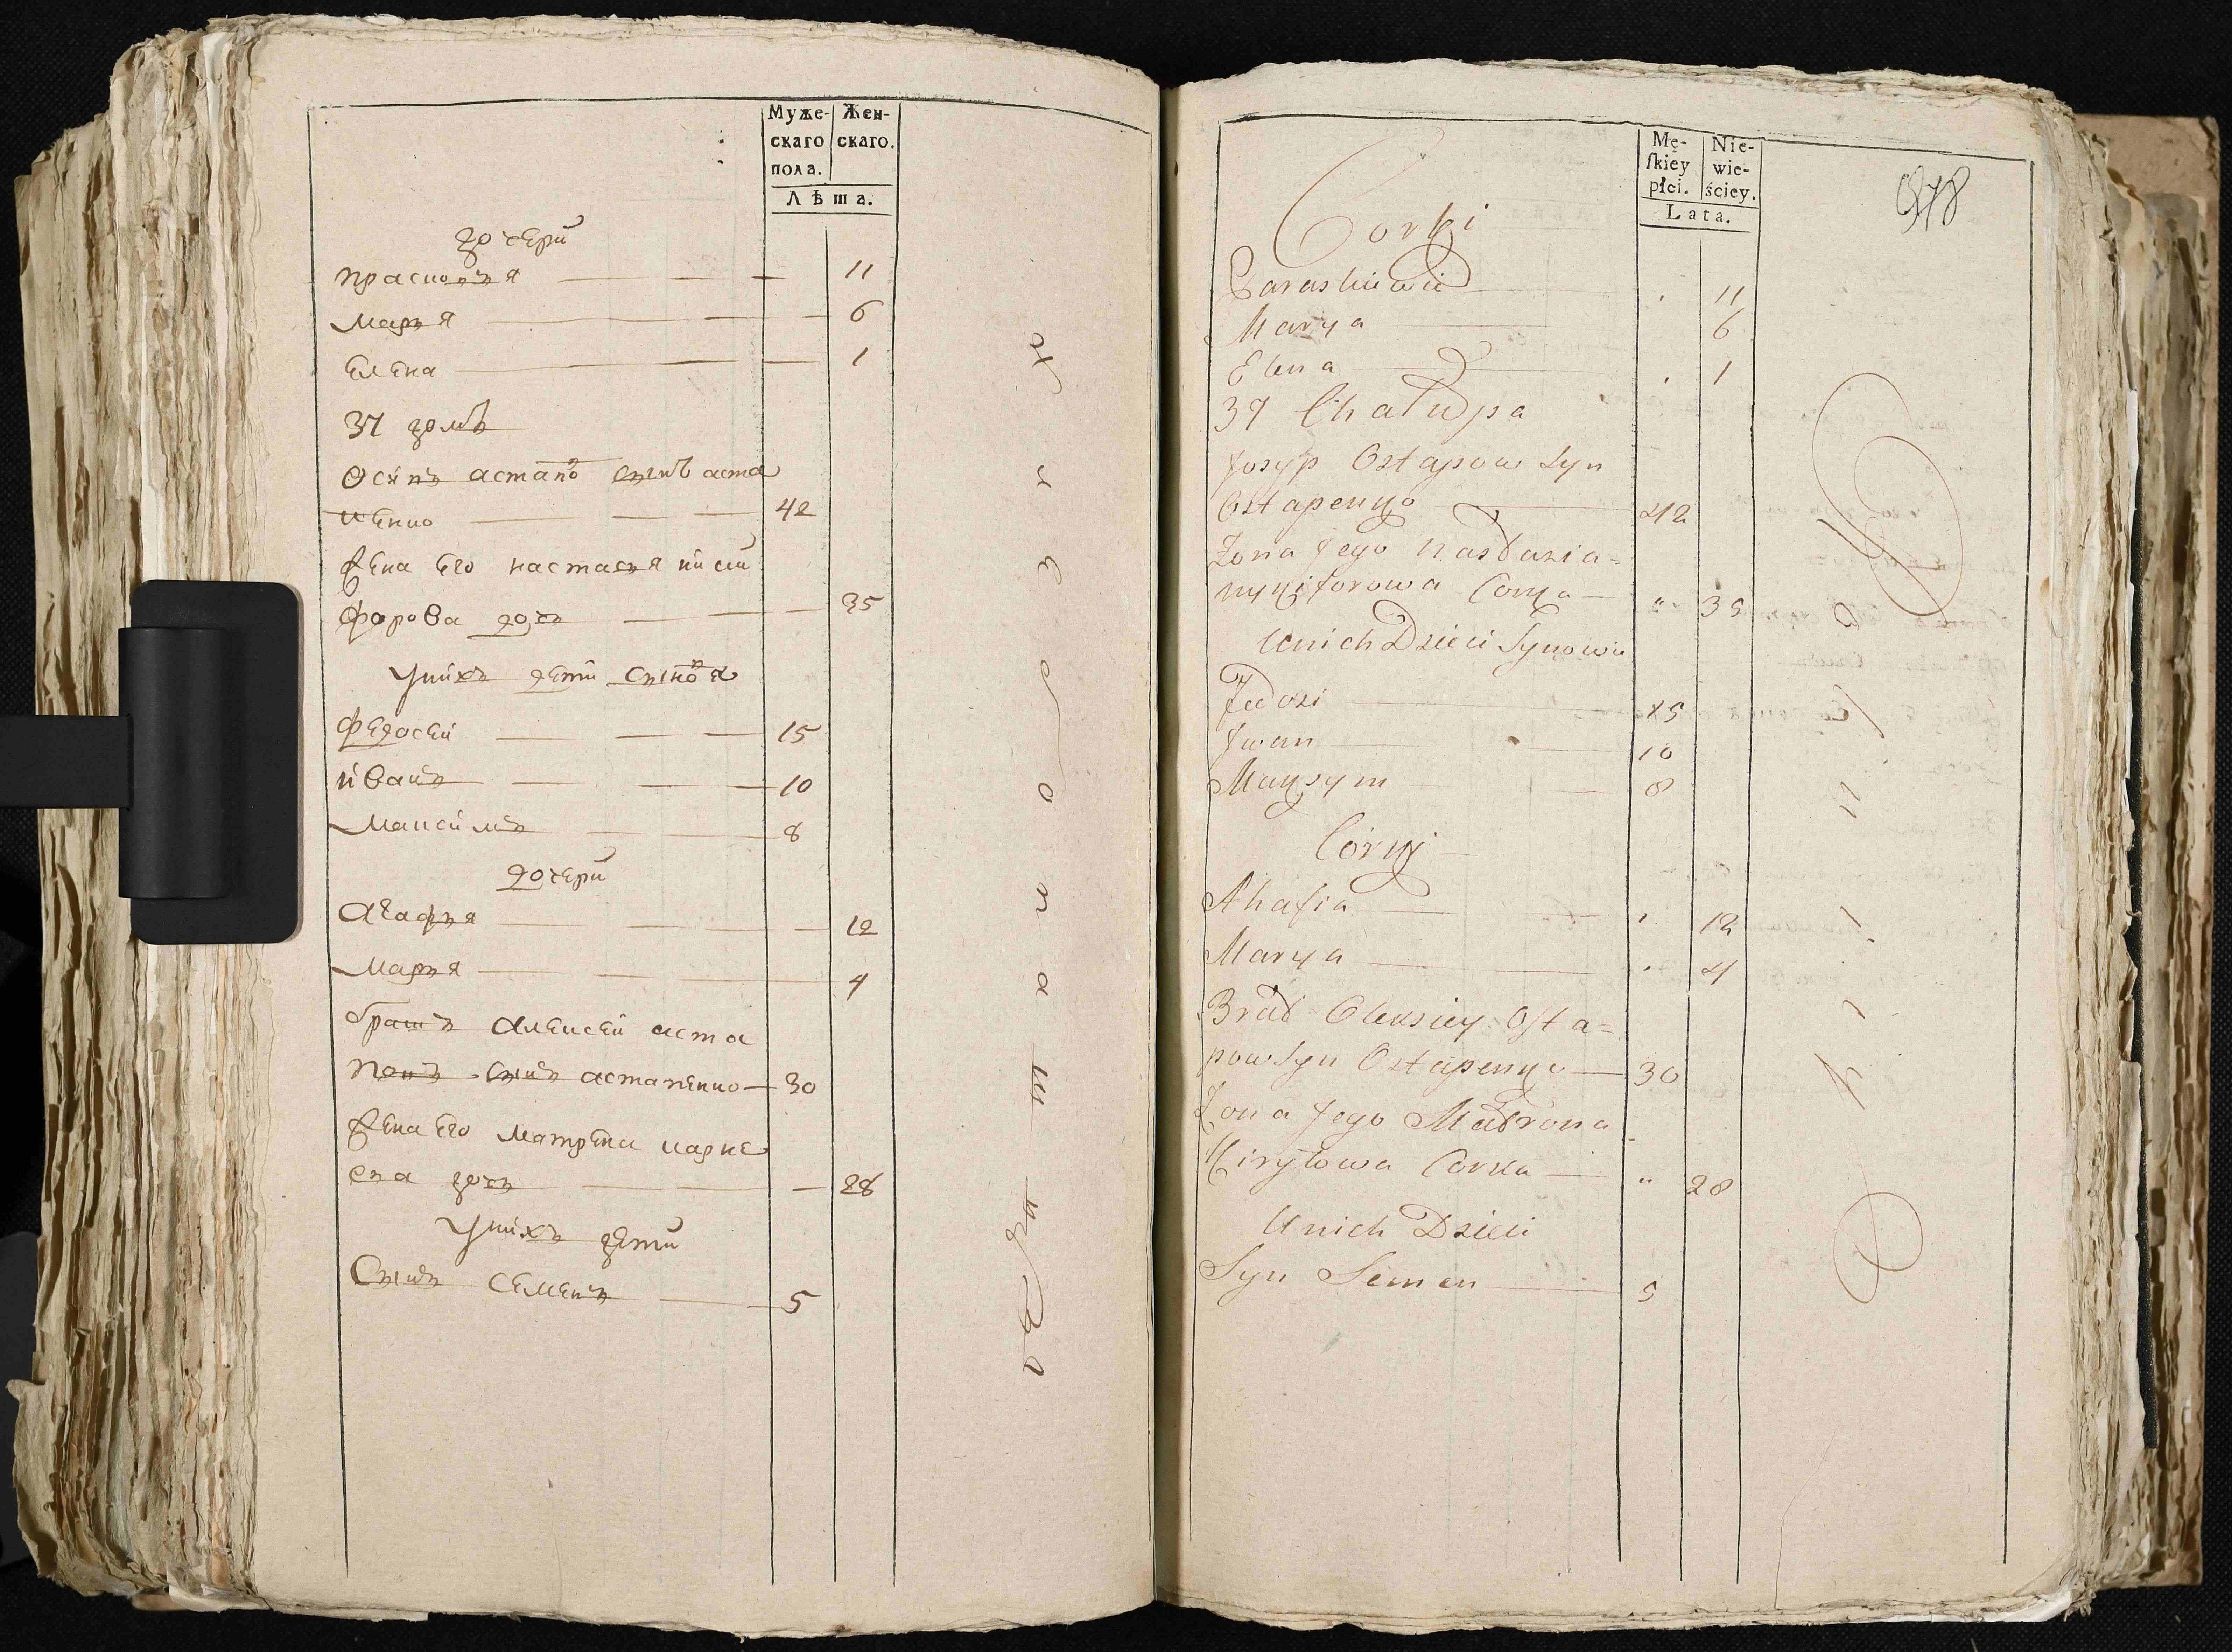 Муже-
скаго
пола.
Жен-
скаго.
Лѣта.
дочери
прасковья 11
марья 6
елена 1
37 домъ
Осипъ астаповъ сынъ аста
пенко 42
жена его настасья ники
форова дочь 35
у нихъ дети сыновя
федосей 15
иванъ 10
максимъ 8
дочери
агафья 12
марья 4
братъ алексей аста
повъ сынъ астапенко 30
жена его матрена
дочь 28
у нихъ дети
Сынъ семенъ 5
Mę-
ſkiey
płci.
Nie-
wie-
ściey.
Lata.
378
Corki
Paraskiewia 11
Marya 6
Elena 1
37 Chałupa
Josyp Ostapow Syn
Ostapenko 42
Zona Jego Nastazia=
nykiforowa Corka " 35
U nich Dzieci Synowie
Fedozi 15
Jwan 10
Maksym 8
Córki
Ahafia 12
Marya 4
Brat Oleksiey Osta=
pow Syn Ostapenko 30
Zona Jego Matrona
Kiryłowa Corka " 28
U nich Dzieci
Syn Semen 5